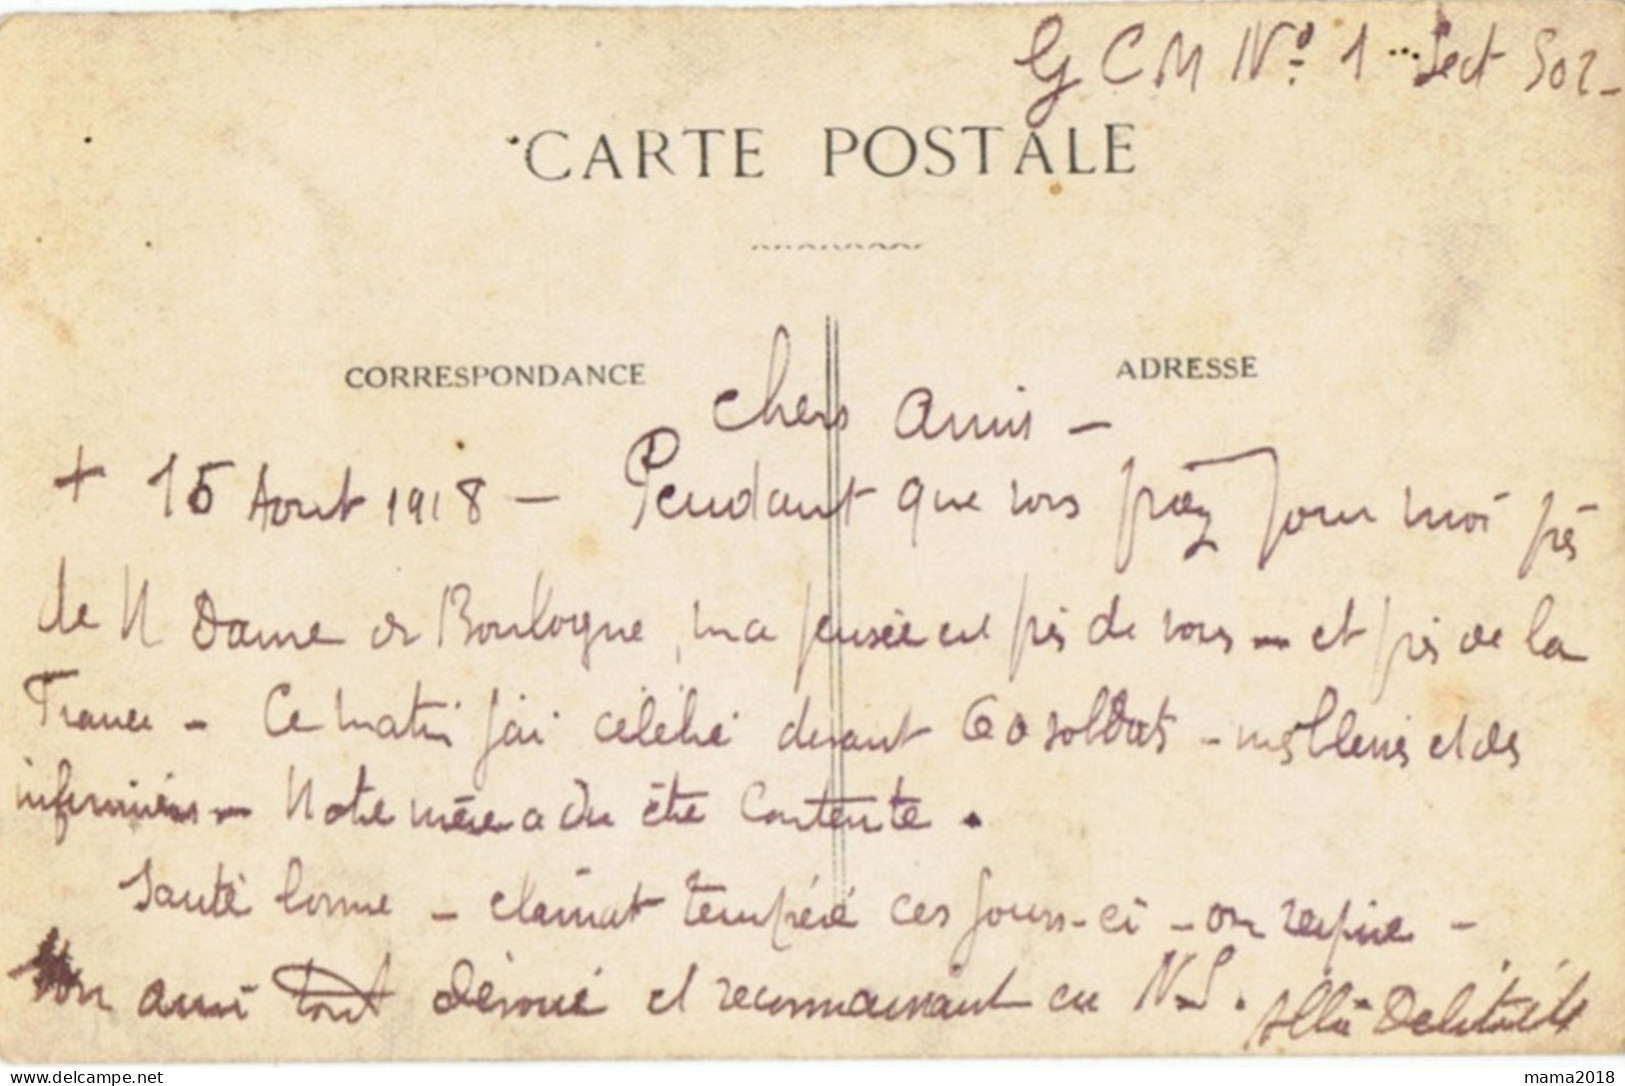 G C M Nº 1 Sect 502 -
CARTE POSTALE
CORRESPONDANCE
ADRESSE
Chers Amis -
+ 15 Aout 1918 - Pendant que vous priez pour moi près
de N Dame de Boulogne, ma pensée est près de vous - et près de la
France - Ce matin j'ai célébré devant 60 soldats - mes blessés et des
infirmiers - Notre mère a du être contente.
Santé bonne - climat tempéré ces jours-ci - on respire -
Son ami tout dévoué et reconnaissant en N.S.
mama2018